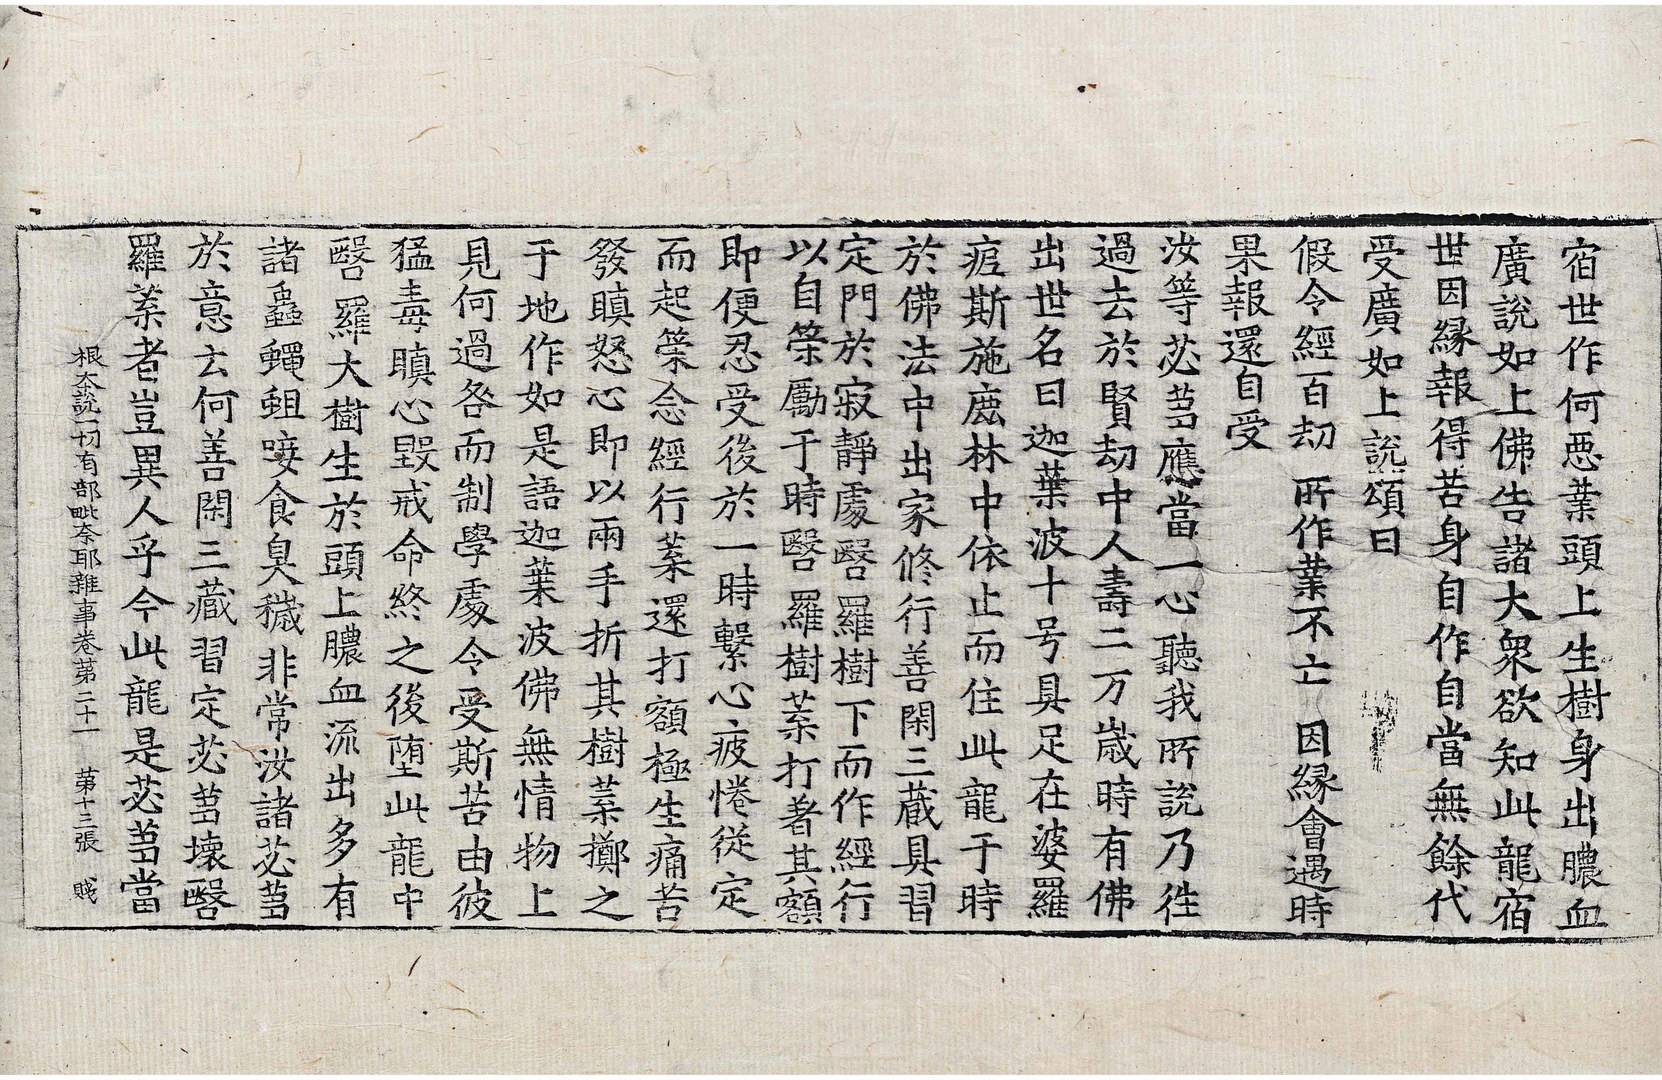 宿世作何悪業頭上生樹身出膿血
廣說如上佛告諸大衆欲知此龍宿
世因縁報得苦身自作自當無餘代
受廣如上說頌曰
假令經百劫　所作業不亡　因縁會遇時
果報還自受
汝等苾蒭應當一心聽我所說乃徃
過去於賢劫中人壽二万歲時有佛
出世名曰迦葉波十号具足在婆羅
痆斯施鹿林中依止而住此龍于時
於佛法中出家修行善閑三藏具習
定門於寂靜處毉羅樹下而作經行
以自策勵于時毉羅樹葉打著其額
即便忍受後於一時繫心疲惓從定
而起策念經行葉還打額極生痛苦
發瞋怒心即以兩手折其樹葉擲之
于地作如是語迦葉波佛無情物上
見何過咎而制學處令受斯苦由彼
猛毒瞋心毀戒命終之後堕此龍中
毉羅大樹生於頭上膿血流出多有
諸蟲蠅蛆唼食臭穢非常汝諸苾蒭
於意云何善閑三藏習定苾蒭壞毉
羅葉者豈異人乎今此龍是苾蒭當
根夲說一切有部毗奈耶雜事卷第二十一　第十三張　賤